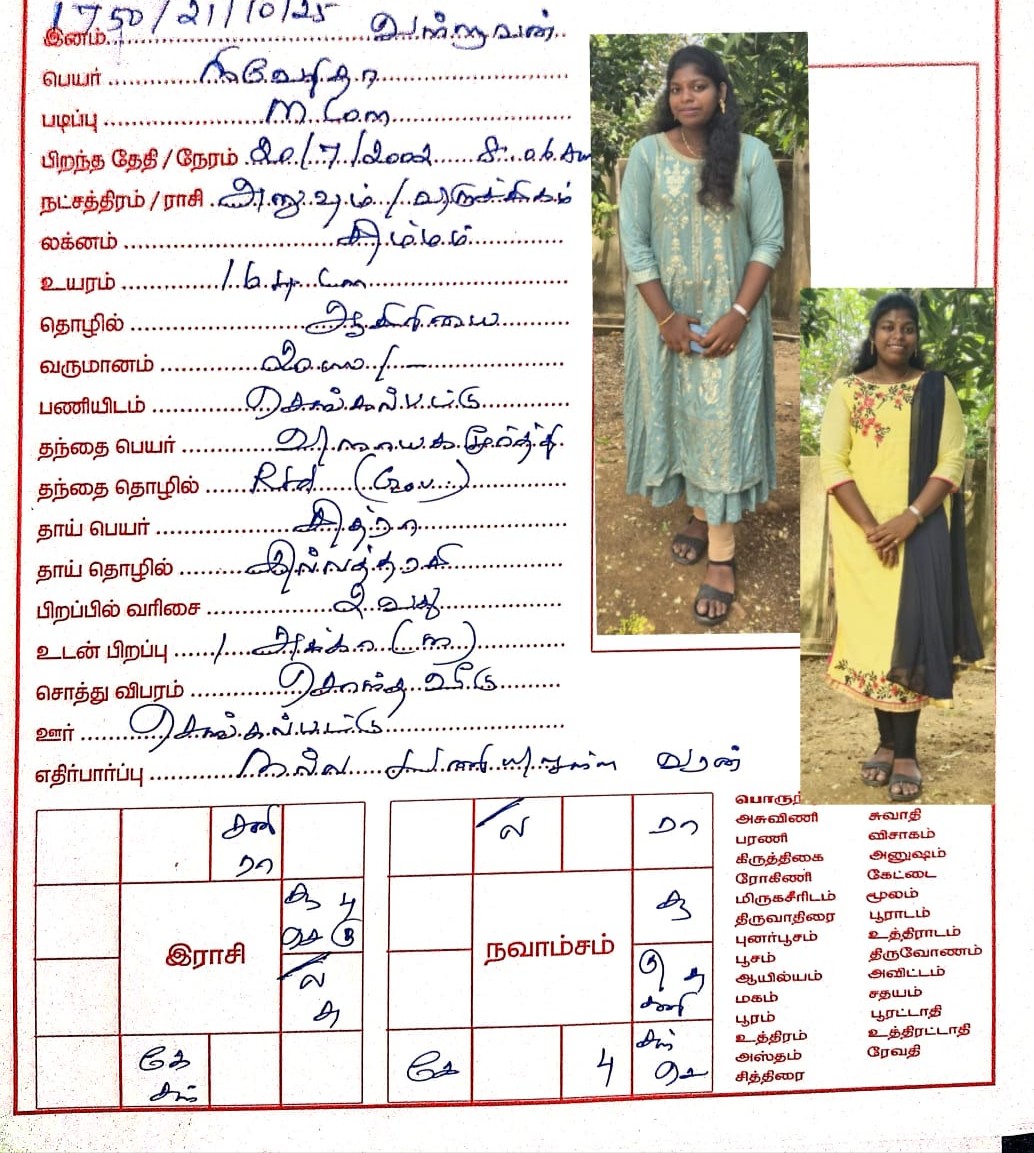 1750/21/10/25
இனம் வள்ளுவன்
பெயர் நிவேதிதா
படிப்பு M.Com
பிறந்த தேதி / நேரம் 20/7/2002
நட்சத்திரம் / ராசி அனுஷம் / விருச்சிகம்
லக்னம் சிம்மம்
உயரம் cm
தொழில் ஆசிரியை
வருமானம்
பணியிடம் செங்கல்பட்டு
தந்தை பெயர் விநாயகமூர்த்தி
தந்தை தொழில் Rtd (Gov)
தாய் பெயர் சித்ரா
தாய் தொழில் இல்லத்தரசி
பிறப்பில் வரிசை 2 வது
உடன் பிறப்பு 1 அக்கா (ம)
சொத்து விபரம் சொந்த வீடு
ஊர் செங்கல்பட்டு
எதிர்பார்ப்பு நல்ல வரன்
சனி
ரா
சூ பு
செ கு
இராசி
ல
சு
கே
சந்
ல
ரா
சூ
நவாம்சம்
கு சு
சனி
கே
பு
சந்
செ
பொருந்
அசுவிணி சுவாதி
பரணி விசாகம்
கிருத்திகை அனுஷம்
ரோகிணி கேட்டை
மிருகசீரிடம் மூலம்
திருவாதிரை பூராடம்
புனர்பூசம் உத்திராடம்
பூசம் திருவோணம்
ஆயில்யம் அவிட்டம்
மகம் சதயம்
பூரம் பூரட்டாதி
உத்திரம் உத்திரட்டாதி
அஸ்தம் ரேவதி
சித்திரை